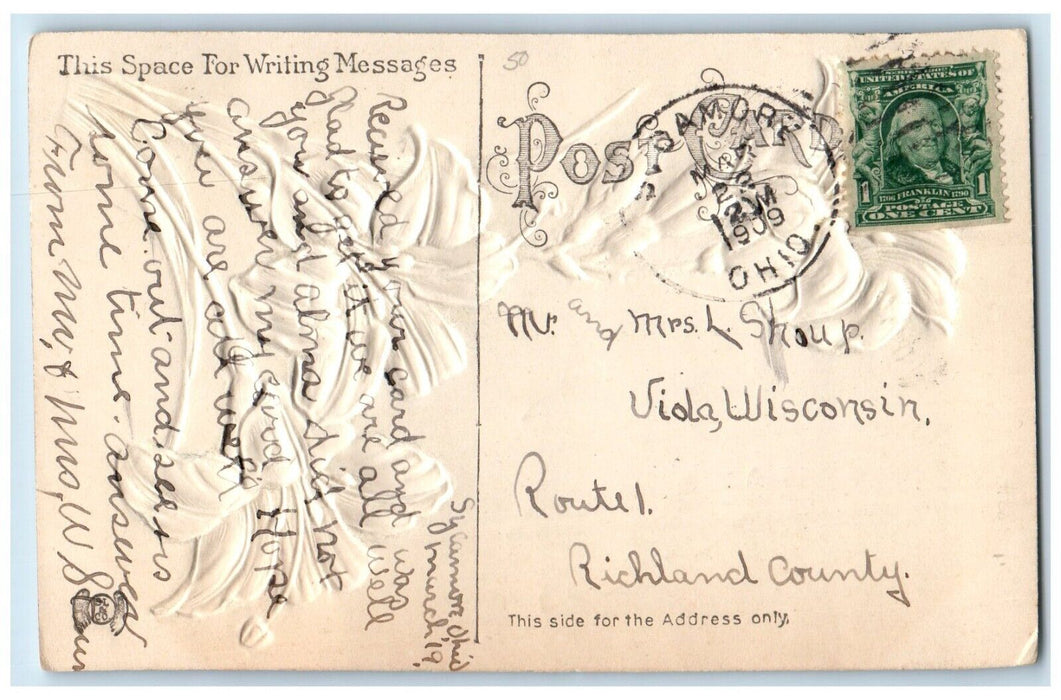 This Space For Writing Messages
50
POST CARD
SYCAMORE
MAR
22
2 PM
1909
OHIO
SERIES 1902
UNITED STATES OF
AMERICA
1706 FRANKLIN 1790
POSTAGE
1 1
ONE CENT
Sycamore, Ohio
march, 19,
Received your card and was
glad to get it we are all well
you and alma did not
answer my card Hope
you are all well
Come out and see us
some time. answer
From Mr, & Mrs, W
Mr. and Mrs. L. Shoup.
Viola, Wisconsin,
Route 1.
Richland County.
This side for the Address only,